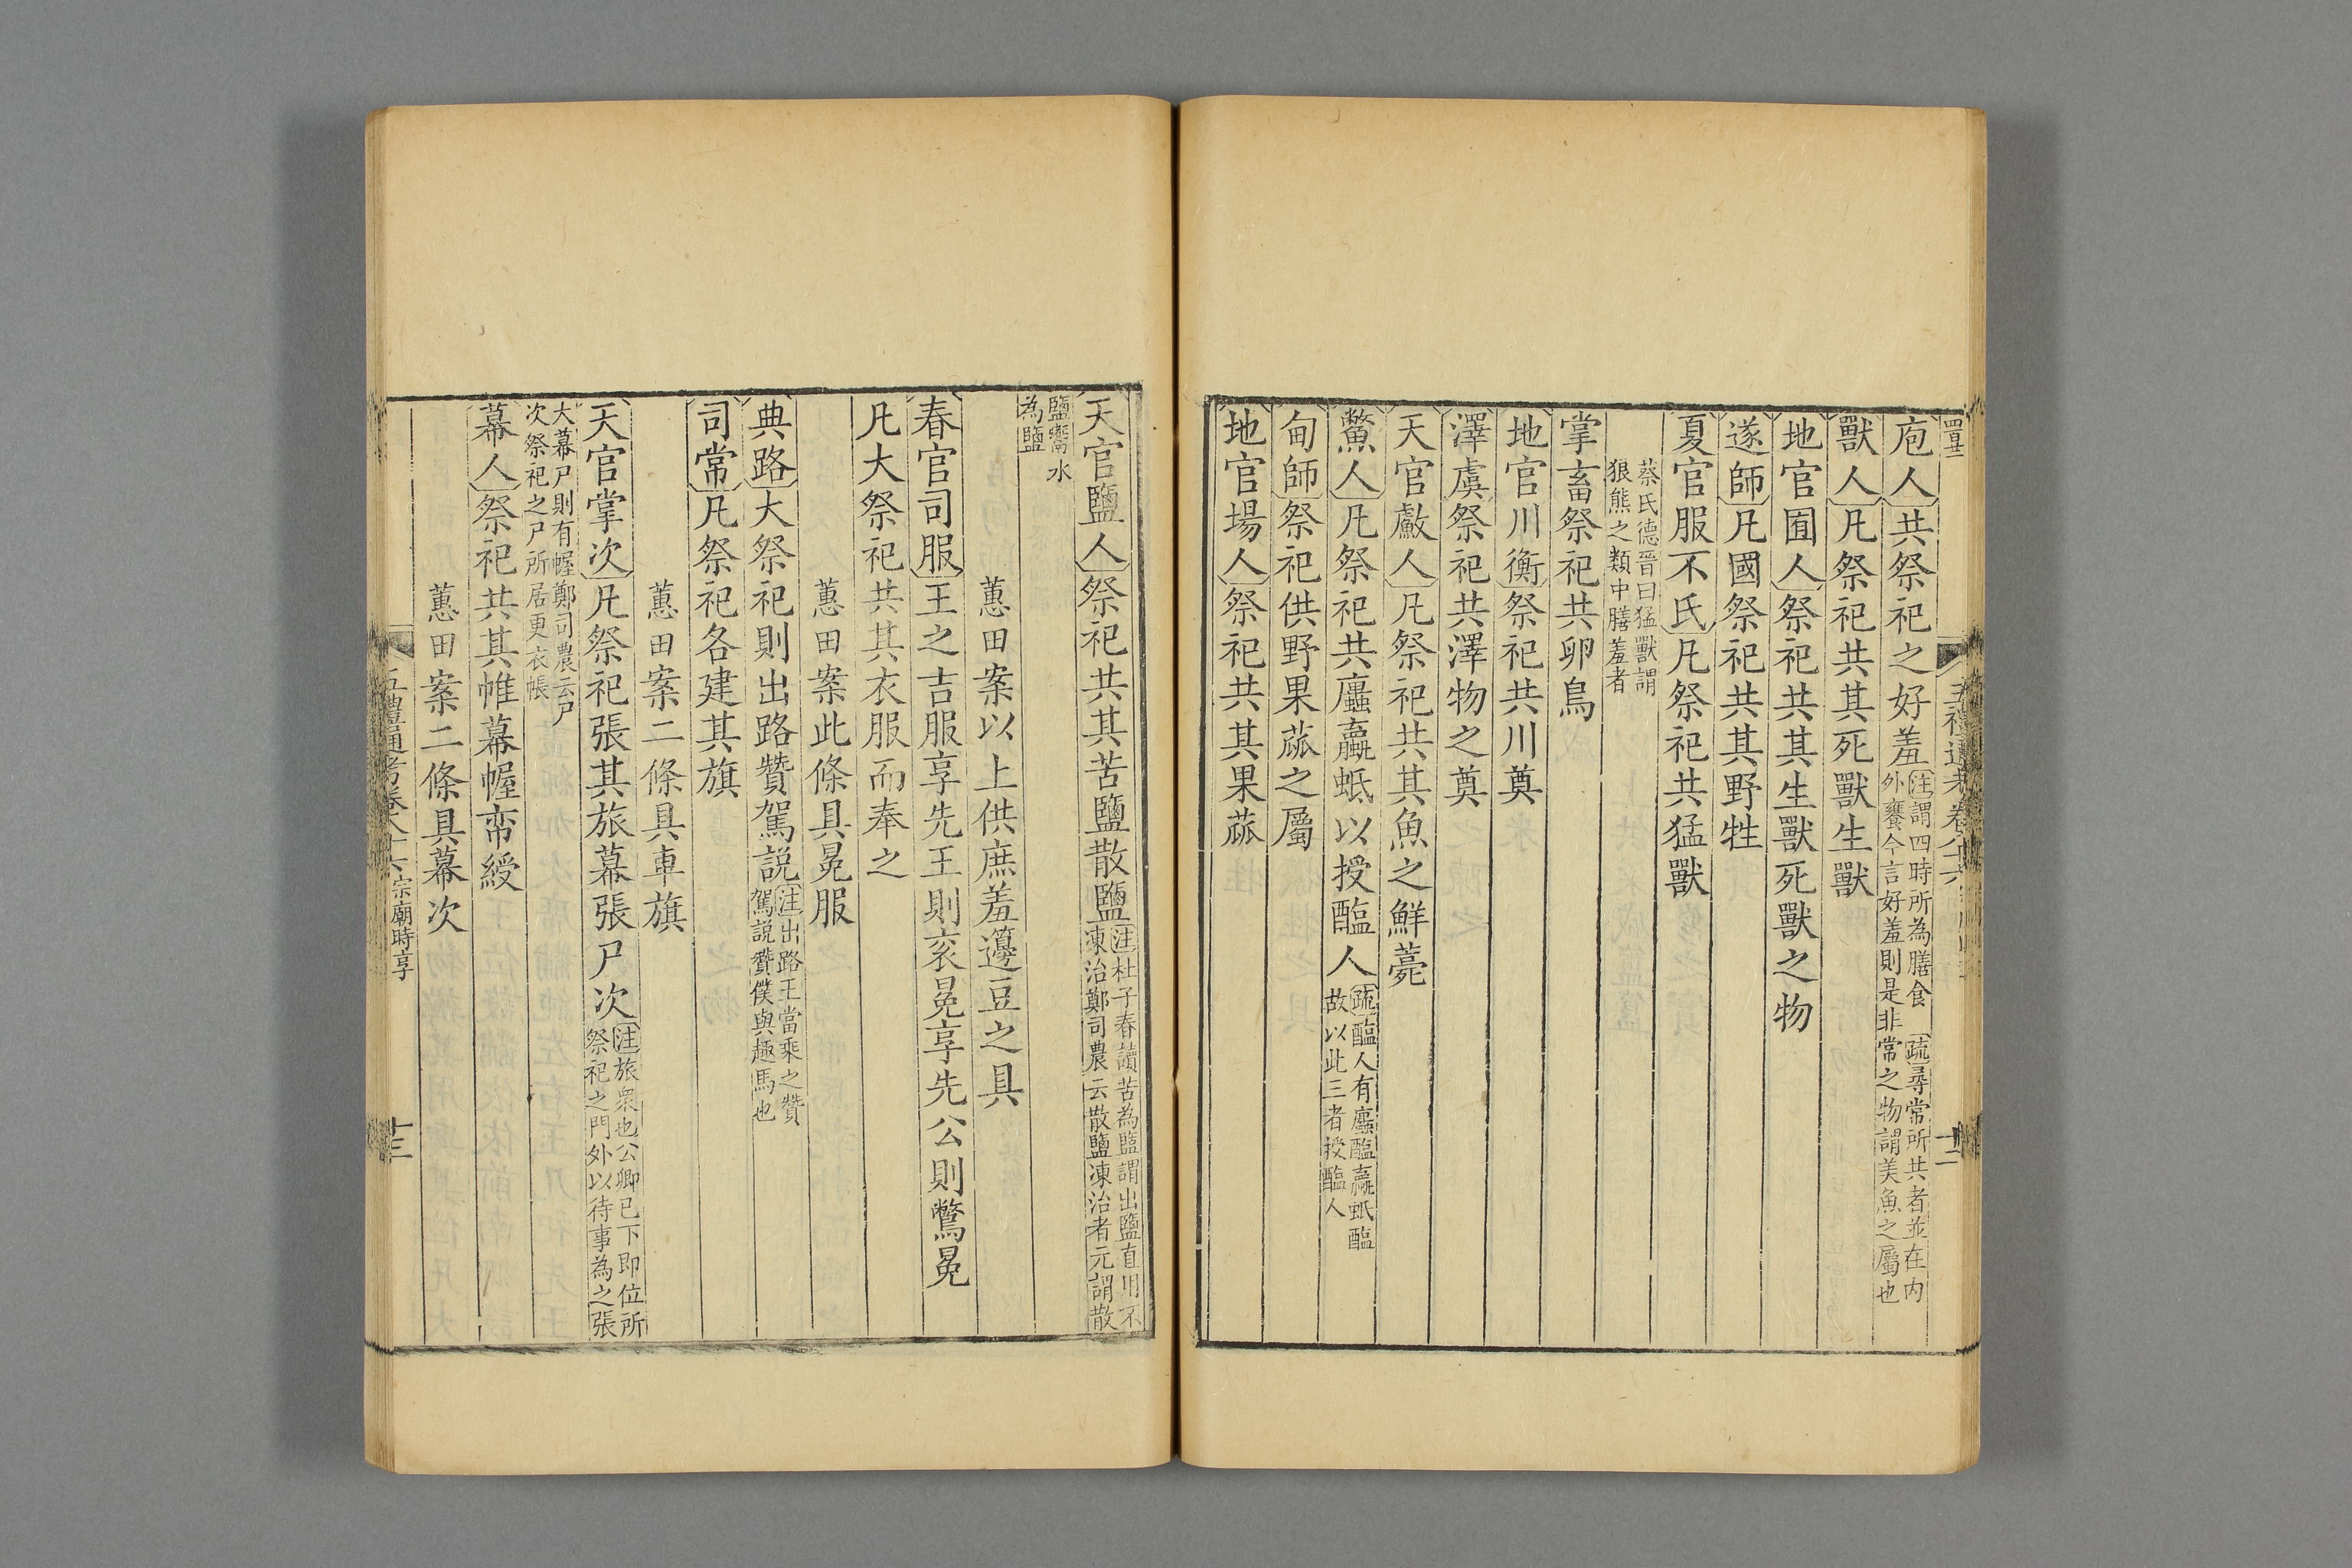 庖人共祭祀之好羞注謂四時所為膳食 疏尋常所共者並在内
外饔今言好羞則是非常之物謂美魚之屬也
獸人凡祭祀共其死獸生獸
地官囿人祭祀共其生獸死獸之物
遂師凡國祭祀共其野牲
夏官服不氏凡祭祀共猛獸
蔡氏德晉曰猛獸謂
狼熊之類中膳羞者
掌畜祭祀共卵鳥
地官川衡祭祀共川奠
澤虞祭祀共澤物之奠
天官䱷人凡祭祀共其魚之鮮薧
鱉人凡祭祀共蠯蠃蚳以授醢人疏醢人有蠯醢蠃蚳醢
故以此三者授醢人
甸師祭祀供野果蓏之屬
地官場人祭祀共其果蓏
天官鹽人祭祀共其苦鹽散鹽注杜子春讀苦為盬謂出鹽直用不
凍治鄭司農云散鹽凍治者元謂散
鹽鬻水
為鹽
蕙田案以上供庶羞籩豆之具
春官司服王之吉服享先王則衮冕享先公則鷩冕
凡大祭祀共其衣服而奉之
蕙田案此條具冕服
典路大祭祀則出路贊駕説注出路王當乘之贊
駕説贊僕與趣馬也
司常凡祭祀各建其旗
蕙田案二條具車旗
天官掌次凡祭祀張其旅幕張尸次注旅衆也公卿已下即位所
祭祀之門外以待事為之張
大幕尸則有幄鄭司農云尸
次祭祀之尸所居更衣帳
幕人祭祀共其帷幕幄帟綬
蕙田案二條具幕次
五禮通考卷八十六宗廟時享
十三